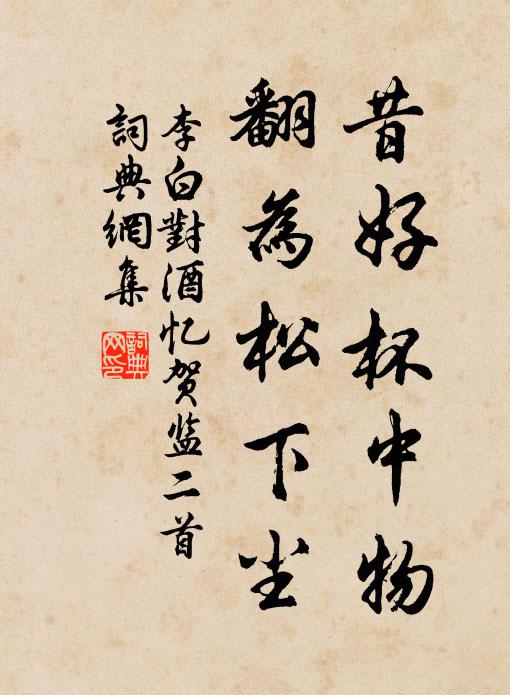 昔好杯中物
翻為松下尘
李白對酒忆贺监二首
詞典網集
詞典網印